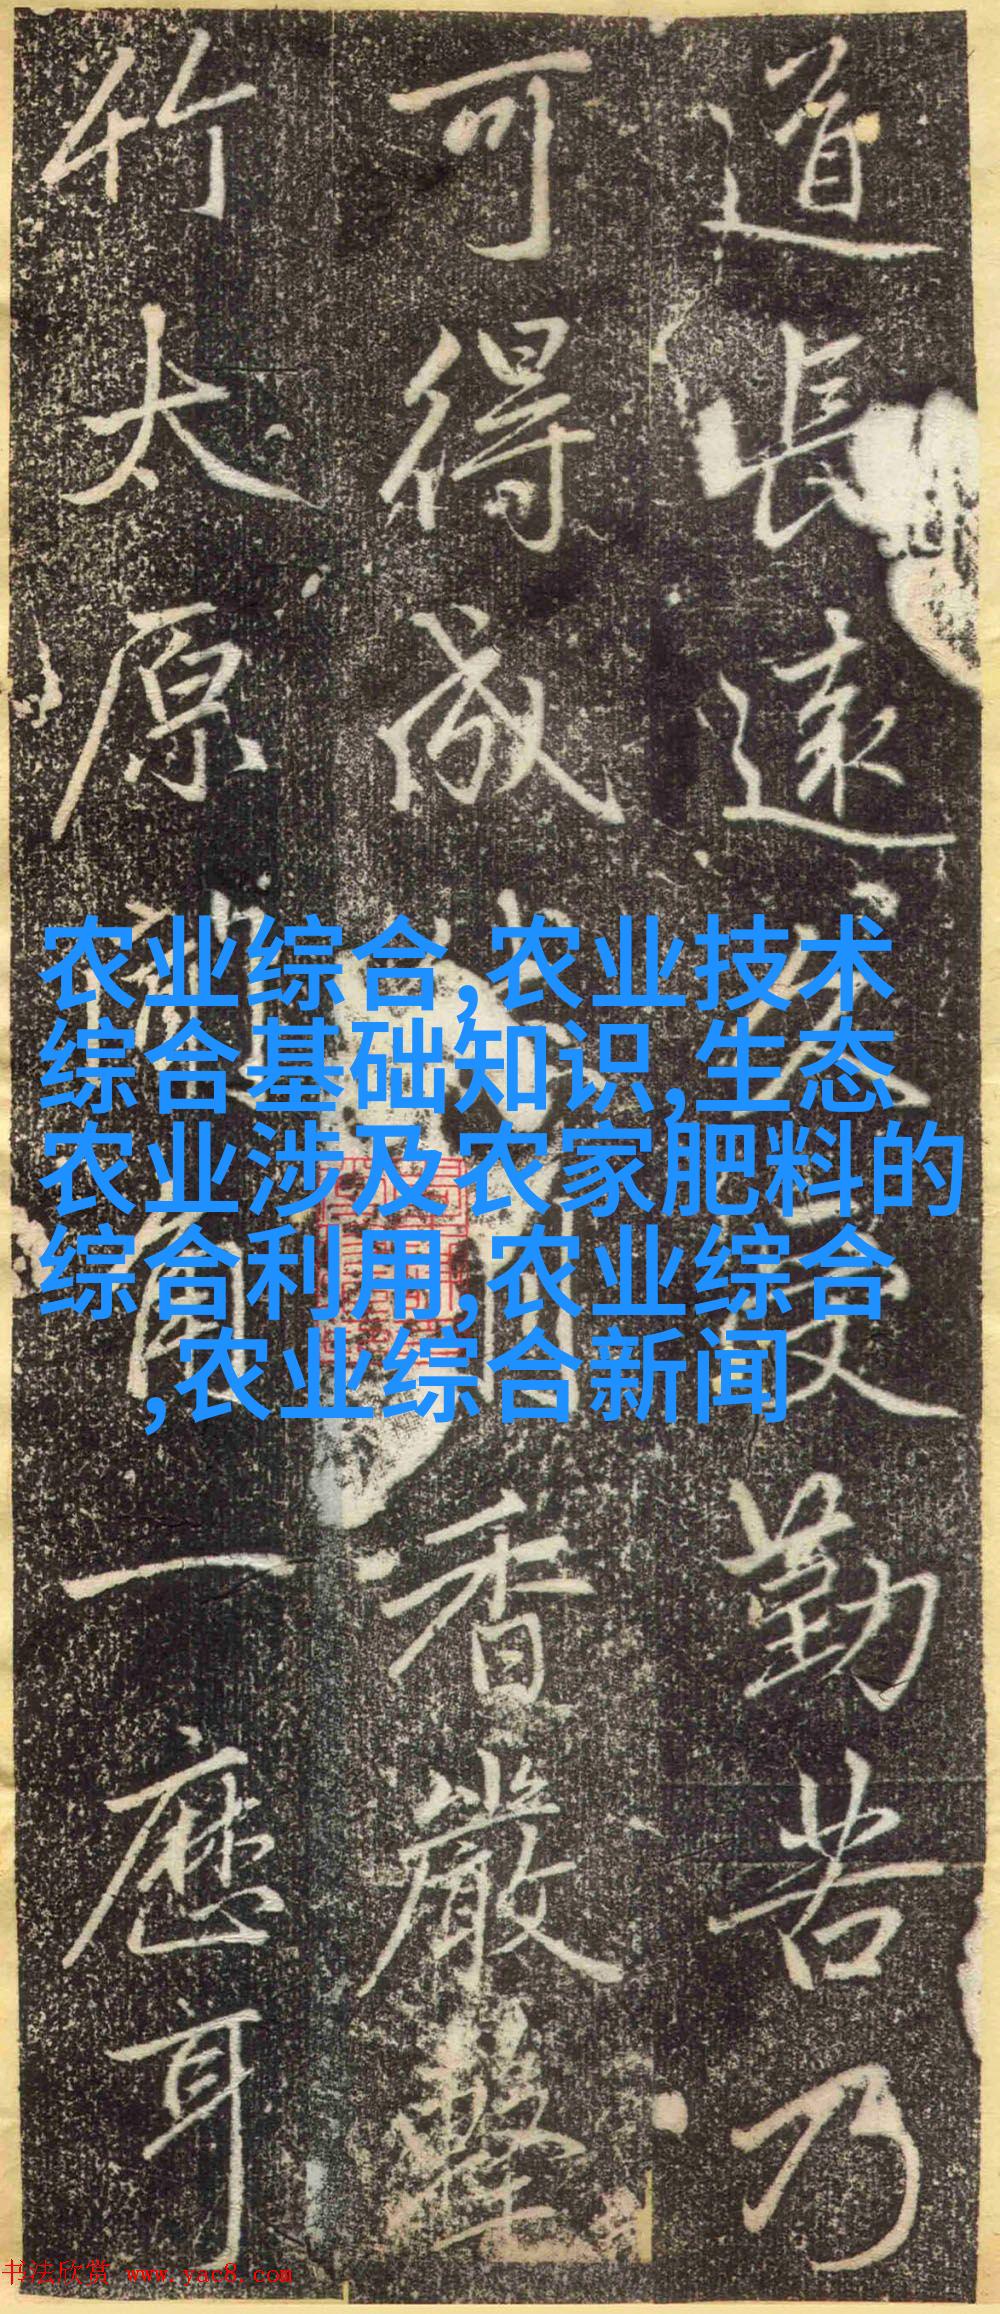 道長遠久受勤苦乃
可得成香嚴擊
竹太原角一應耳
农业综合,农业技术
综合基础知识,生态
农业涉及农家肥料的
综合利用,农业综合
,农业综合新闻
书法欣赏 www.yac8.com